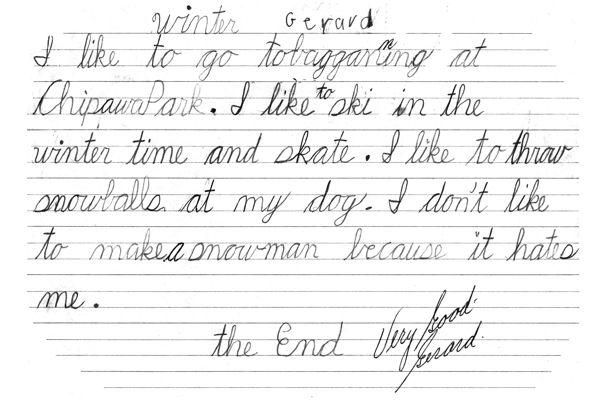 winter Gerard
I like to go tobagganning at
ChipawaPark. I like to ski in the
winter time and skate. I like to throw
snowballs at my dog. I don't like
to make a snowman because it hates
me.
the End Very Good
Gerard.